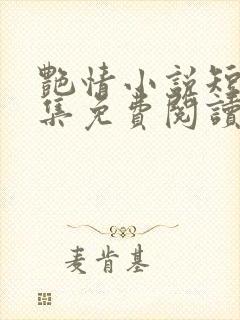 艷情小說短
集免費閱讀
麦肯基